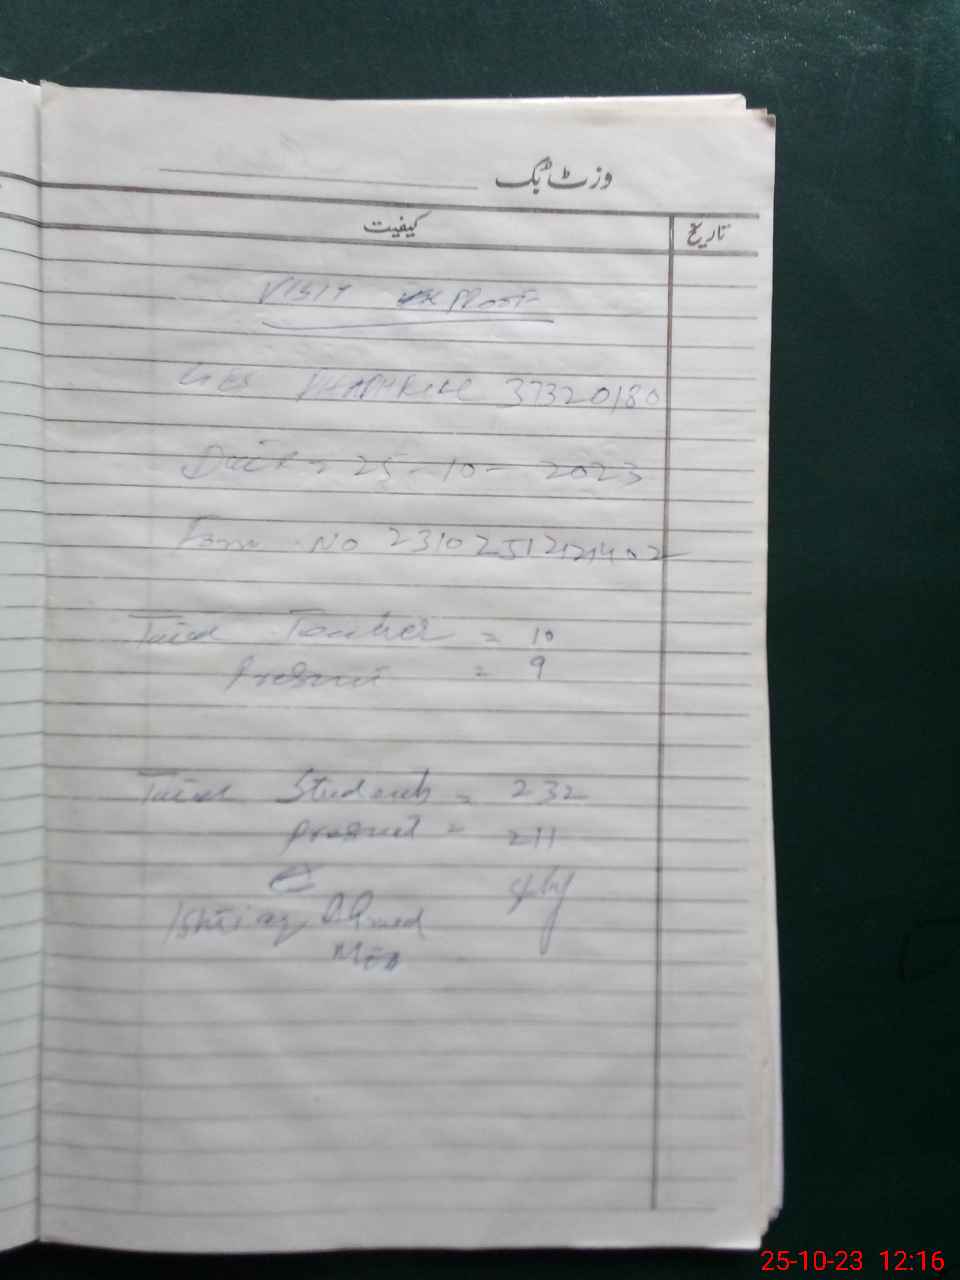 وزٹ بک
کیفیت
تاریخ
VISIT PROOF
GES 37320180
Date = 25-10-2023
Form No
Total Teacher = 10
Present = 9
Total Students = 232
Present = 211
Ishtiaq Ahmed
25-10-23 12:16